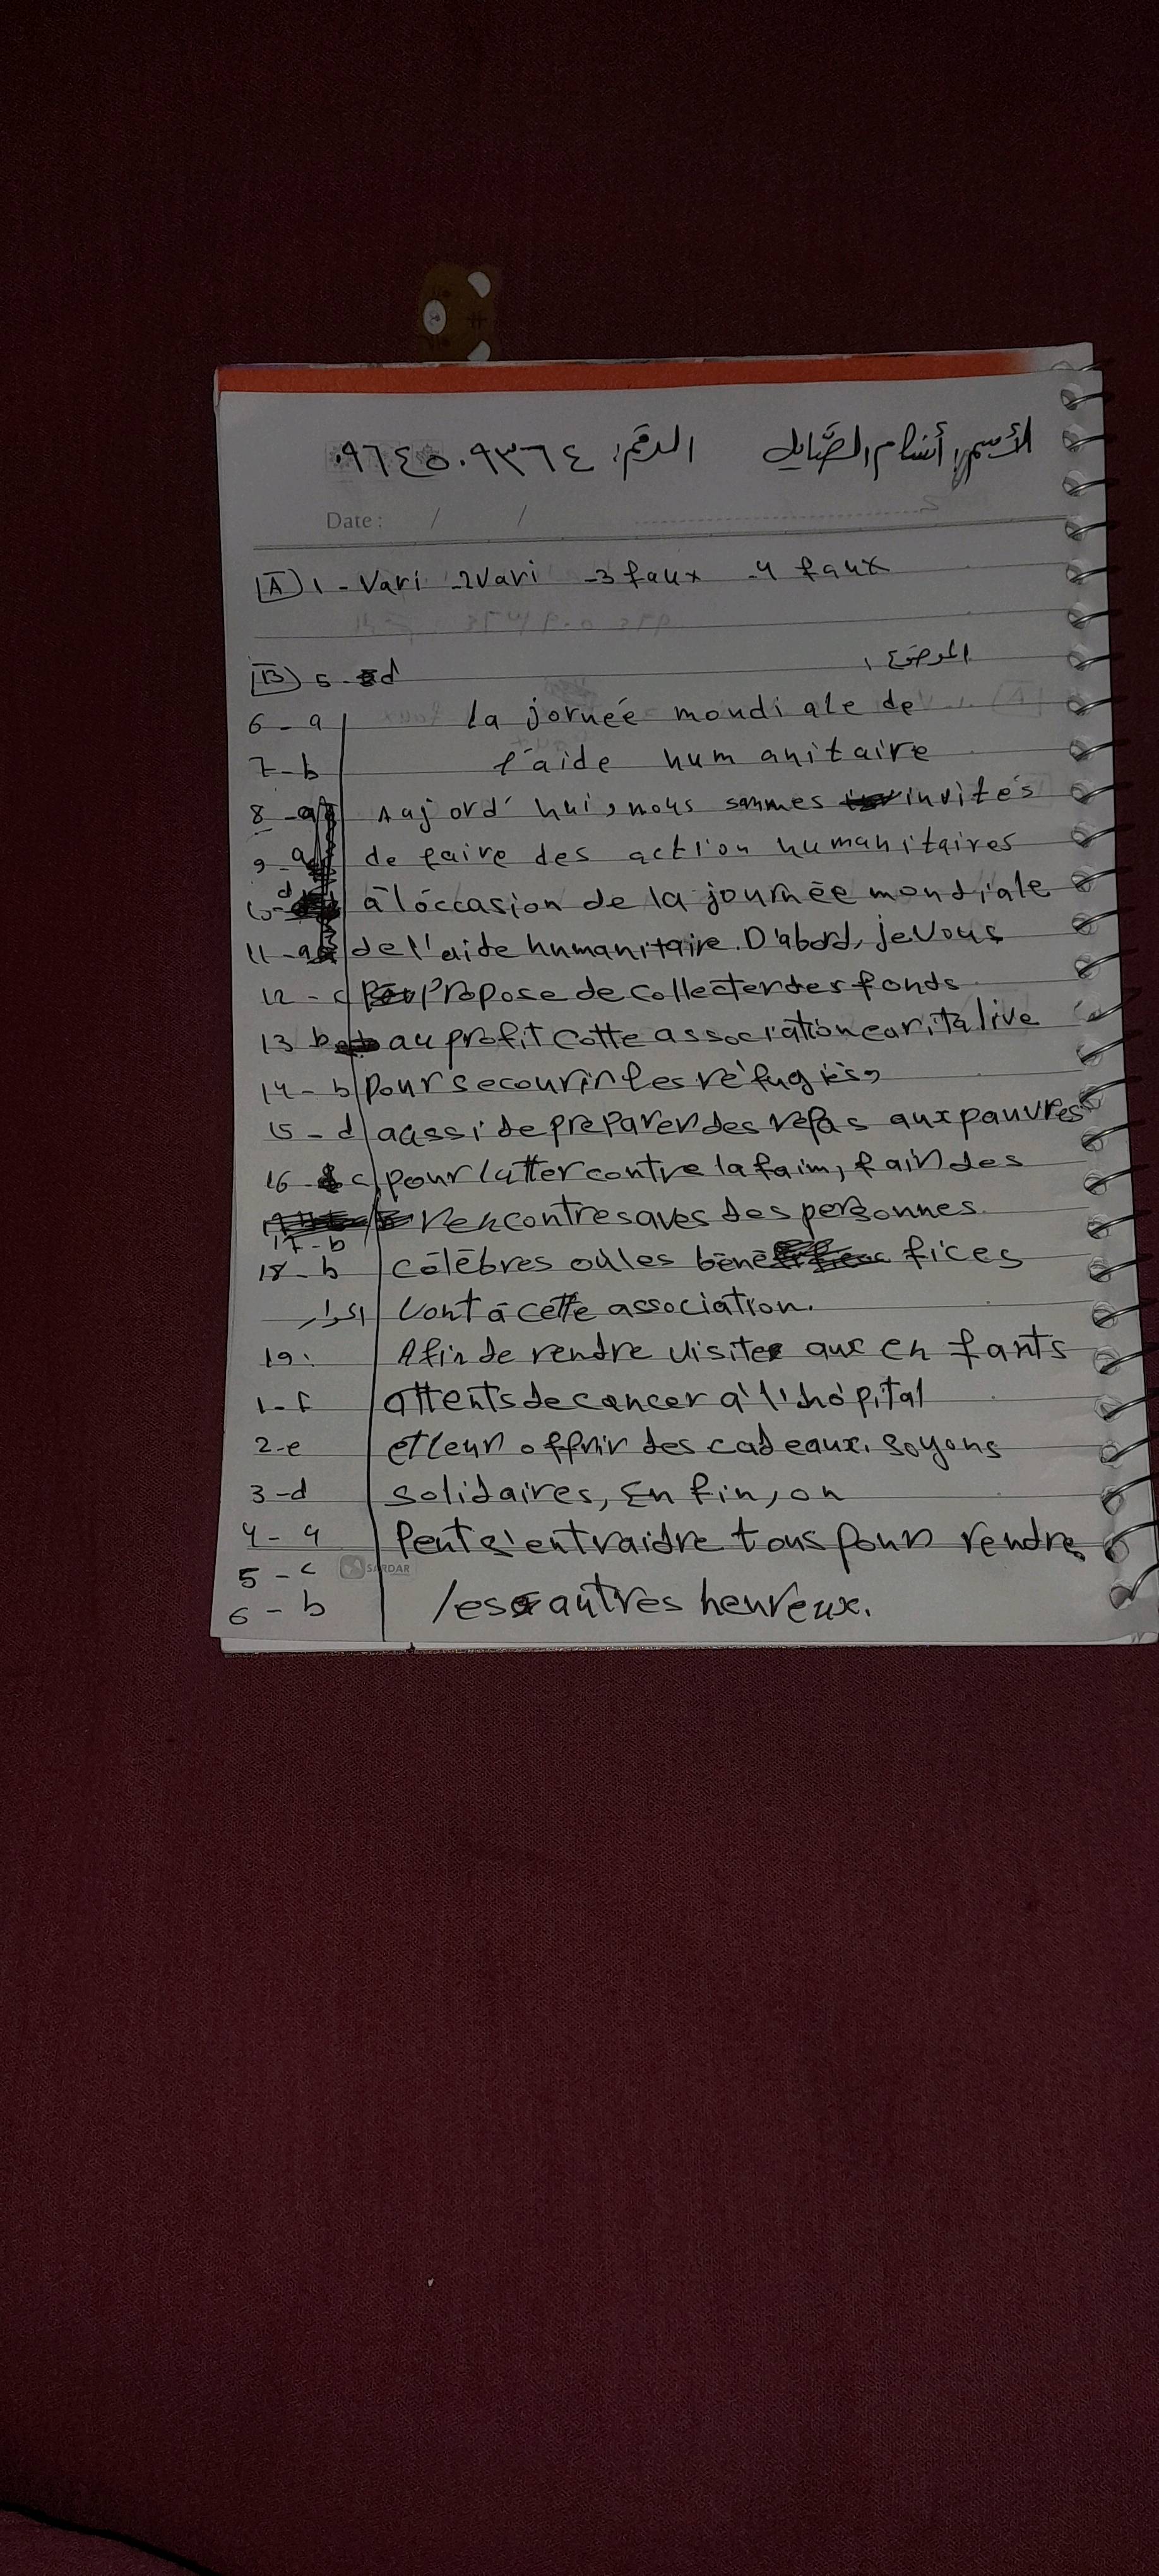 الأسم: أنسام الصَّايل الرقم: ٠٩٦٤٥٠٩٣٦٤
Date: / /
[A] 1 - Vari -2 Vari -3 faux -4 faux
الموضوع:
[B] 5 - d
6 - a
7 - b
8 - a
9 - a
10 - d
11 - a
12 - c
13 b
14 - b
15 - d
16 - c
17 - b
18 - b
الحوار
19:
1 - f
2 - e
3 - d
4 - a
5 - c
6 - b
la jornée mondiale de
l'aide humanitaire
Aujord'hui, nous sommes invités
de faire des action humanitaires
à l'occasion de la journée mondiale
de l'aide humanitaire. D'abord, je vous
propose de collecter des fonds
au profit cette association caritative
pour secourir les réfugiés,
aussi de preparer des repas aux pauvres
pour lutter contre la faim, fair des
rencontres aves des personnes
célèbres où les bénéfices
vont à cette association.
Afin de rendre visite aux enfants
attents de cancer à l'hôpital
et leur offrir des cadeaux. soyons
solidaires, Enfin, on
peut s'entraidre tous pour rendre
les autres heureux.
SARDAR